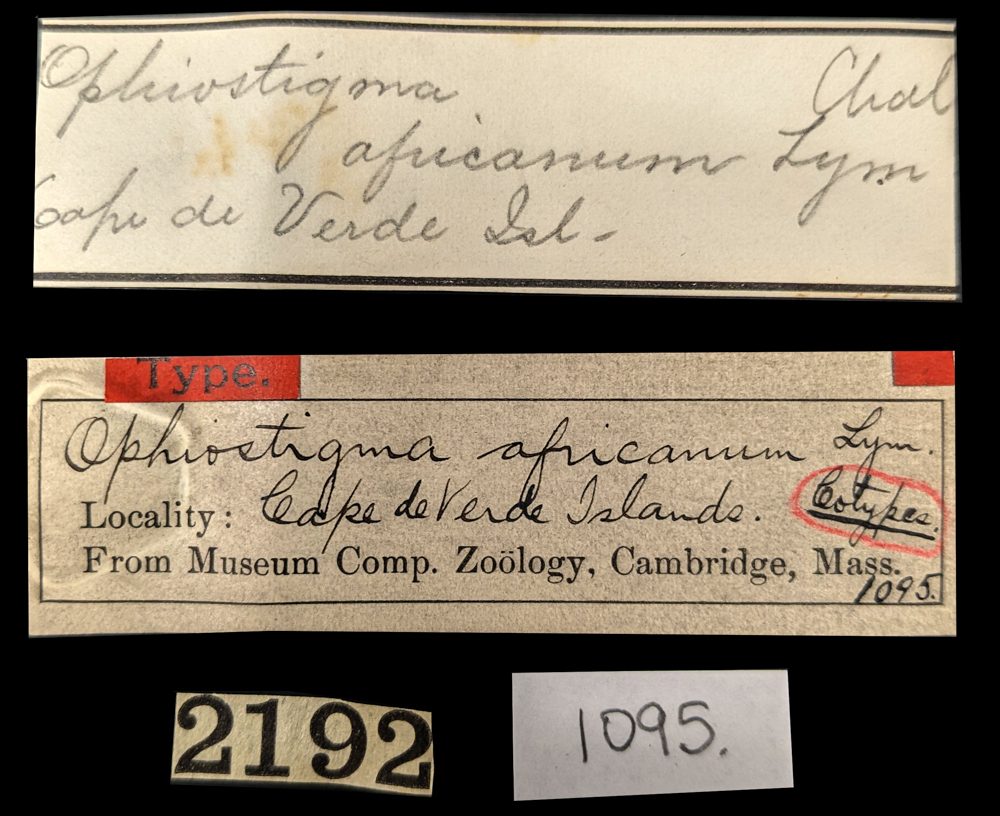 Ophiostigma Chal
africanum Lym
Cape de Verde Isl-
Type.
Ophiostigma africanum Lym.
Locality: Cape de Verde Islands. Cotypes.
From Museum Comp. Zoölogy, Cambridge, Mass.
1095.
2192
1095.